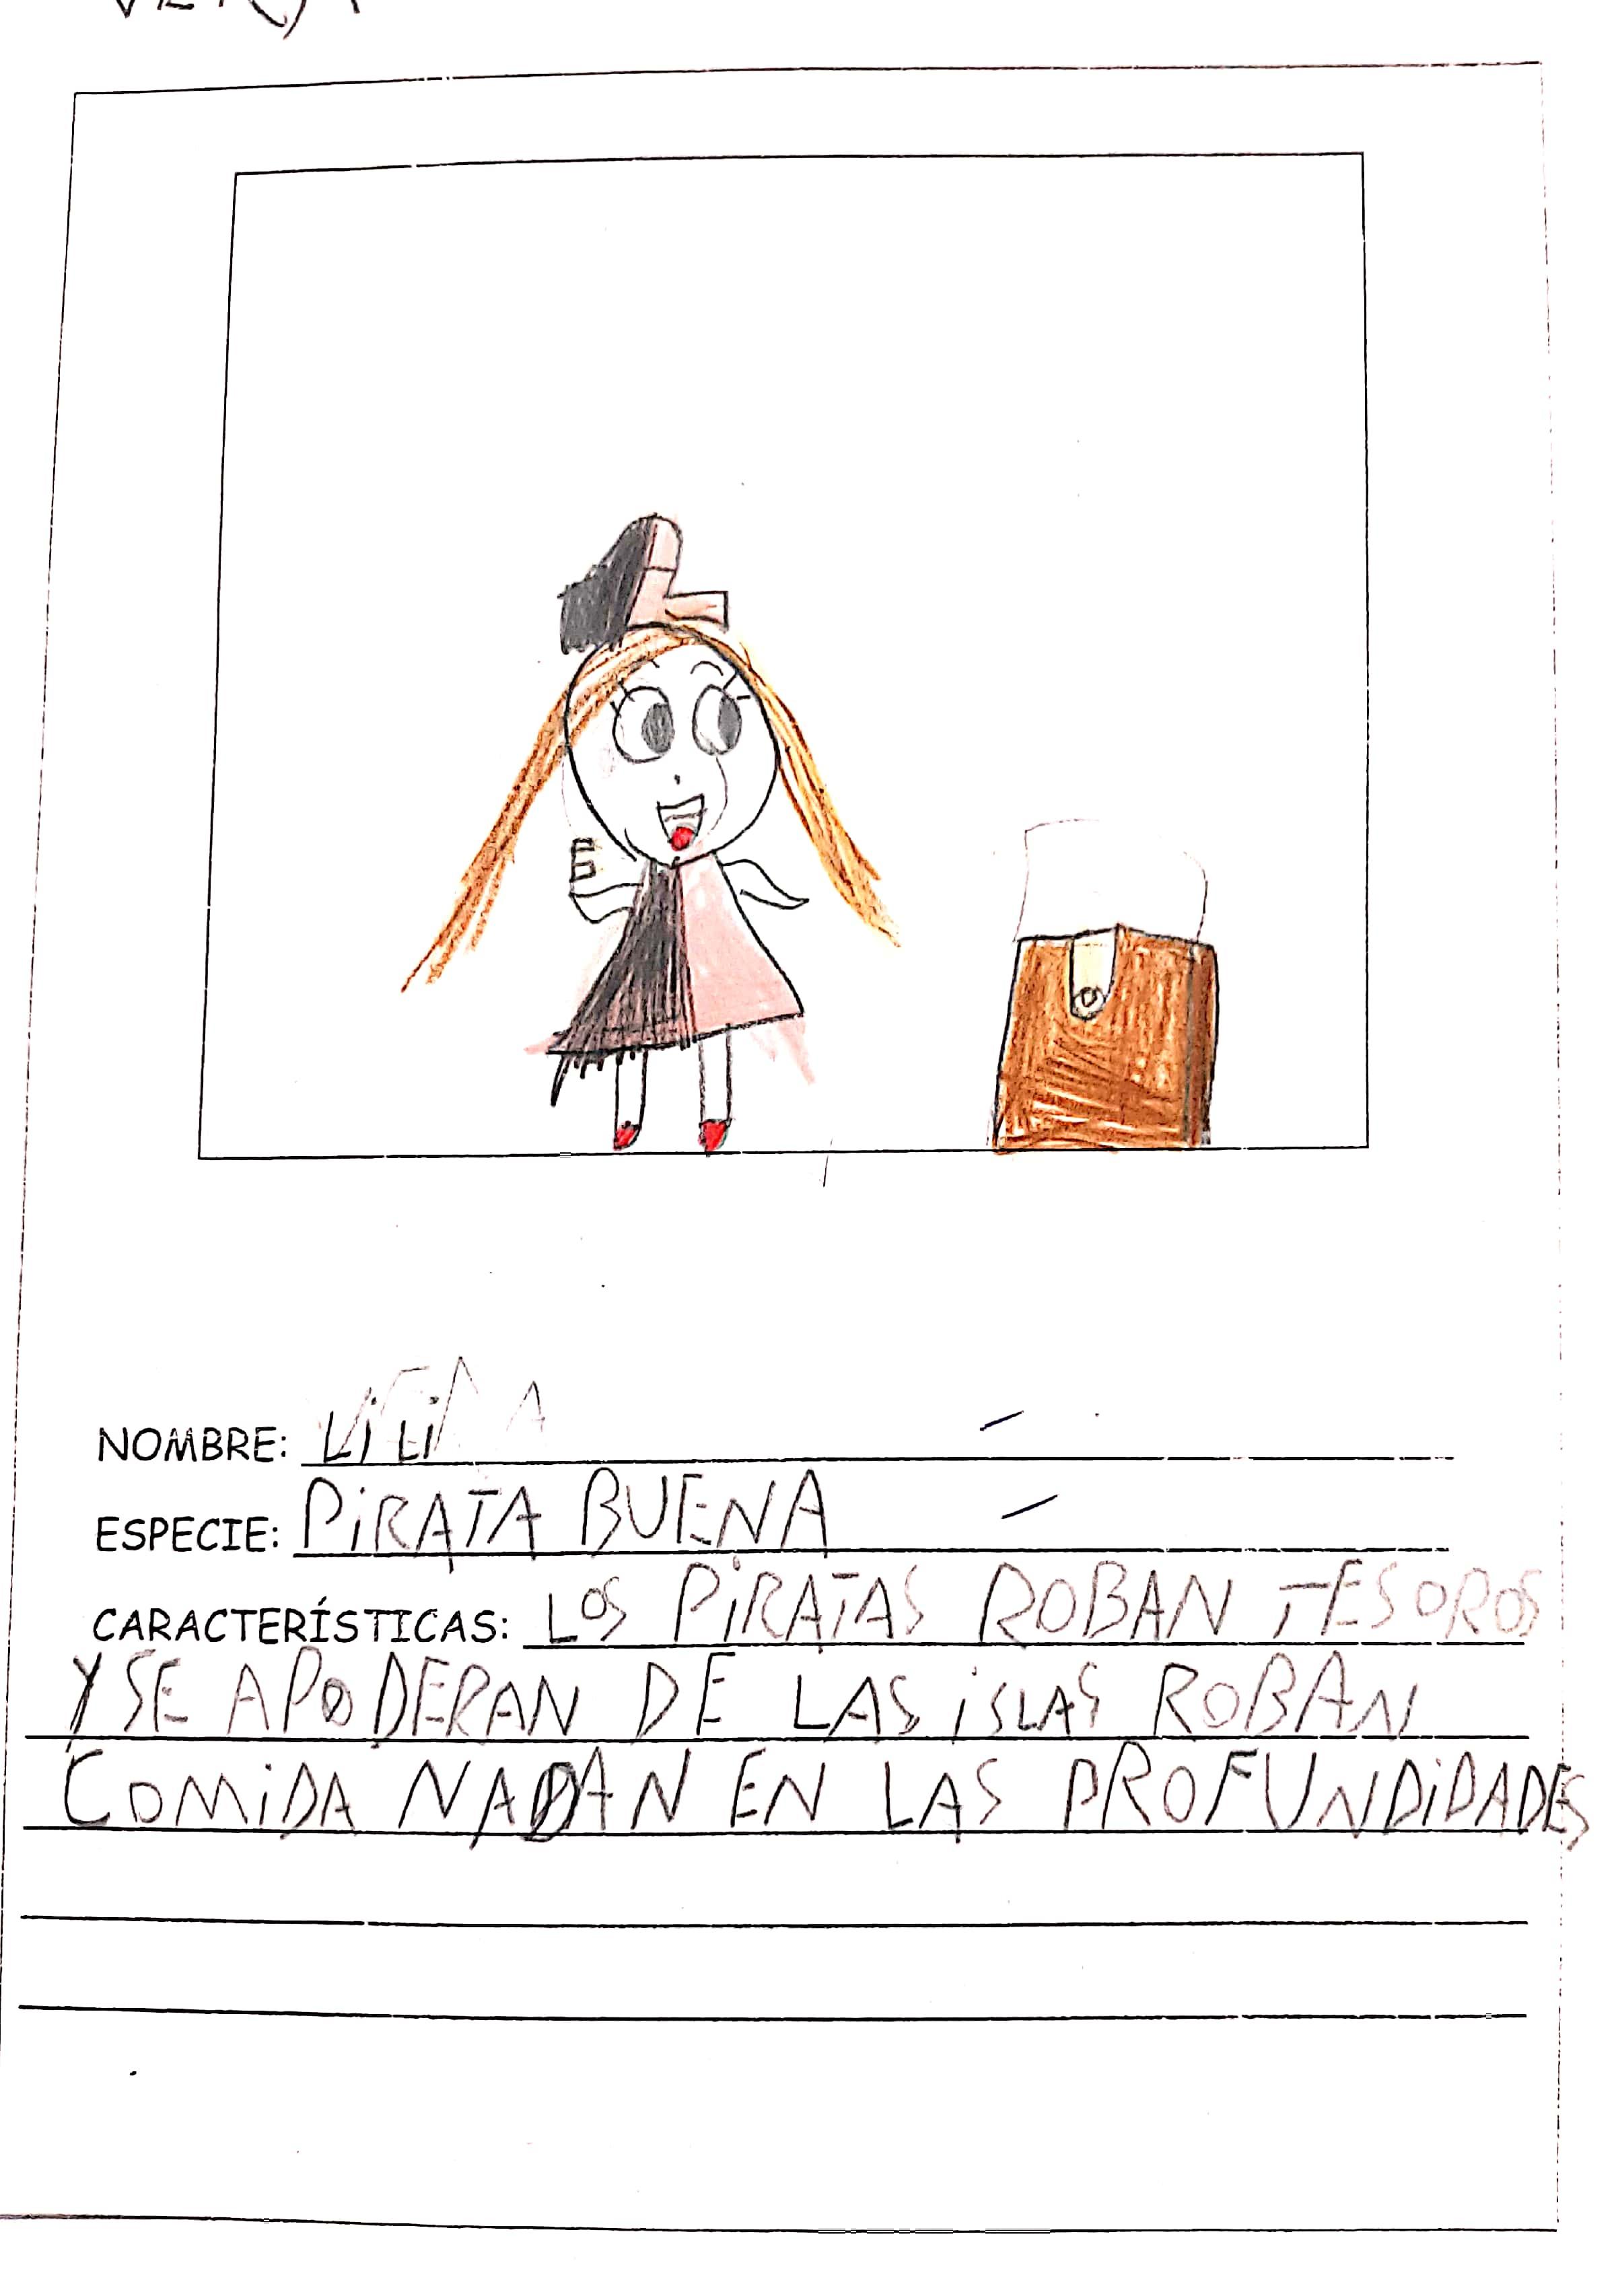 NOMBRE: LiLi
ESPECIE: PiRATA BUENA
CARACTERÍSTICAS: LOS PiRATAS ROBAN TESOROS
Y SE APODERAN DE LAS iSLAS ROBAN
COMiDA NADAN EN LAS PROFUNDiDADES